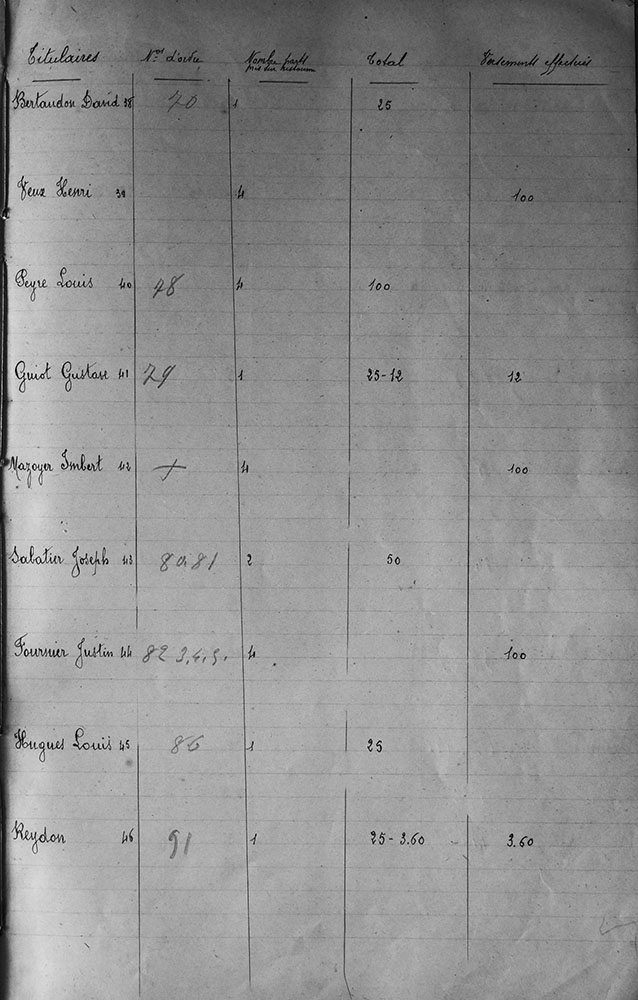 Titulaires Nos d'ordre Nombre parts Total Versements effectués
Bertaudon David 38 70 1 25
Veux Henri 39 4 100
Peyre Louis 40 78 4 100
Guiot Gustave 41 79 1 25-12 12
Mazoyer Imbert 42 + 4 100
Sabatier Joseph 43 80.81 2 50
Fournier Justin 44 82 3.4.5. 4 100
Hugues Louis 45 86 1 25
Reydon 46 91 1 25-3.60 3.60